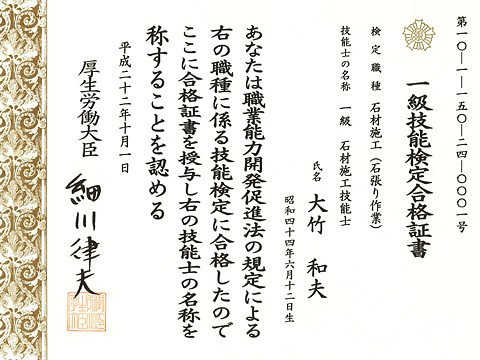 第一〇―一―一五〇―二四―〇〇〇一号
一級技能検定合格証書
検定職種 石材施工（石張り作業）
技能士の名称 一級 石材施工技能士
氏名 大竹 和夫
昭和四十四年六月十二日生
あなたは職業能力開発促進法の規定による
右の職種に係る技能検定に合格したので
ここに合格証書を授与し右の技能士の名称を
称することを認める
平成二十二年十月一日
厚生労働大臣
細川律夫